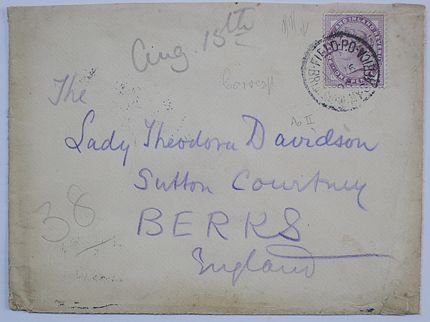 Aug. 15th
The
Lady Theodora Davidson
Sutton Courtney
BERKS
England
38